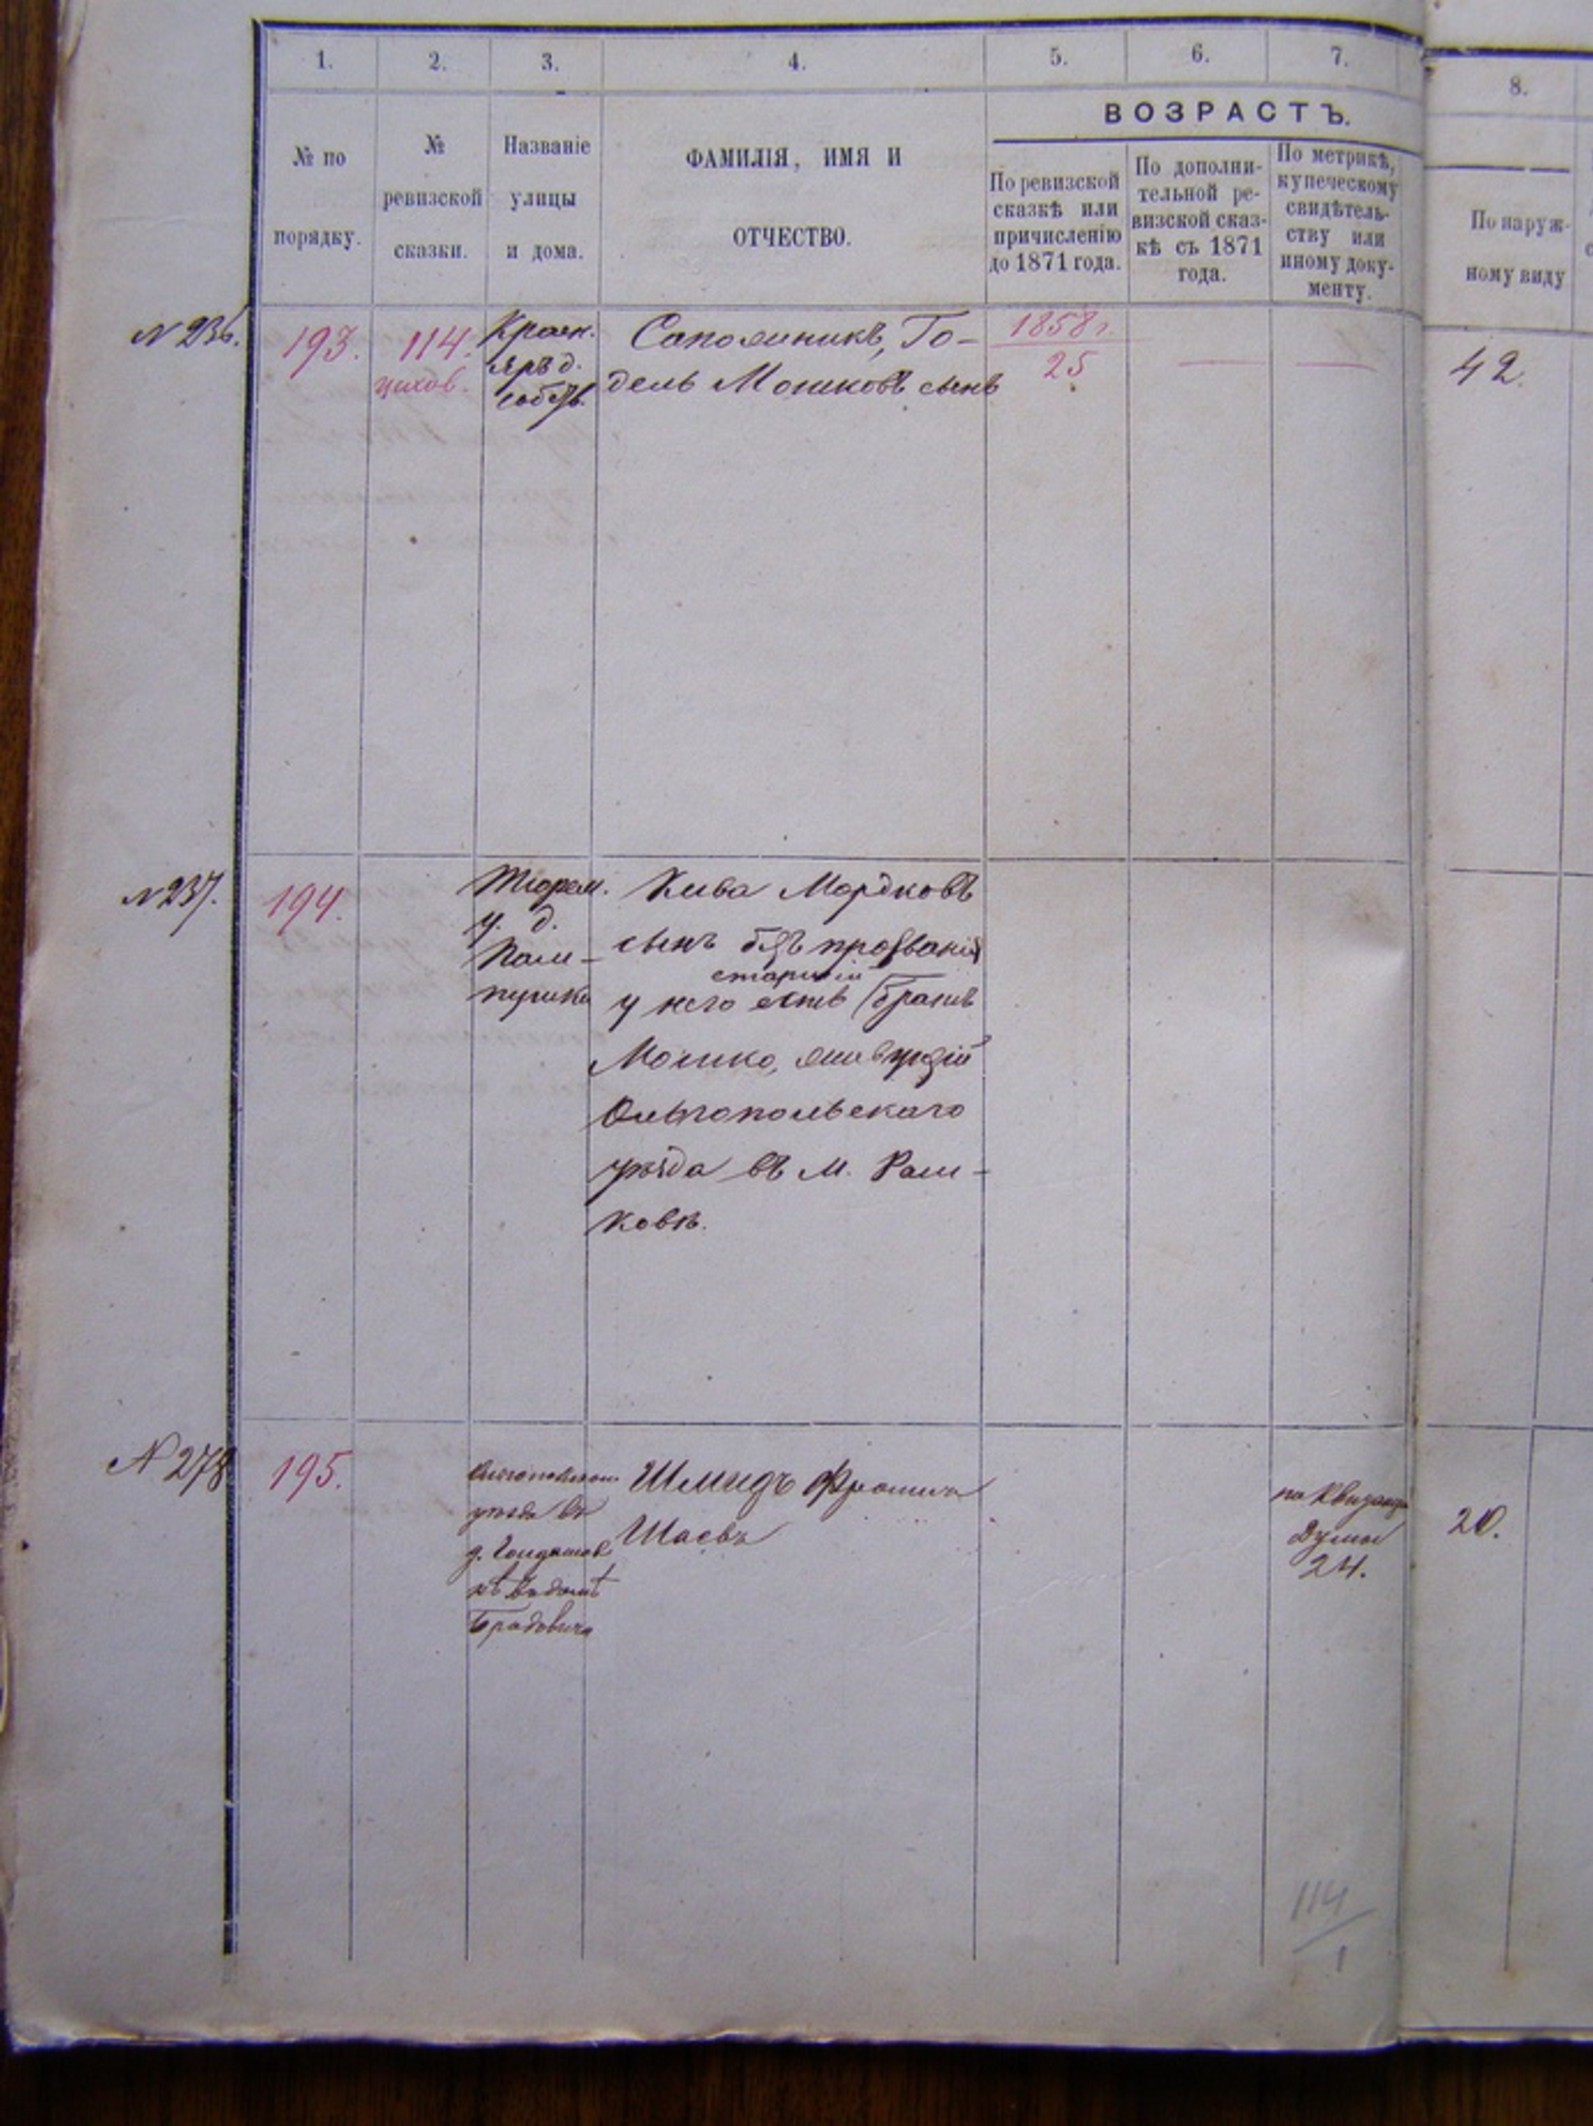 1.
2.
3.
4.
5.
6.
7.
8.
ВОЗРАСТЪ.
№ по
порядку.
№
ревизской
сказки.
Названіе
улицы
и дома.
ФАМИЛІЯ, ИМЯ И
ОТЧЕСТВО.
По ревизской
сказкѣ или
причисленію
до 1871 года.
По дополни-
тельной ре-
визской сказ-
кѣ съ 1871
года.
По метрикѣ,
купеческому
свидѣтель-
ству или
иному доку-
менту.
По наруж-
ному виду
N 236.
193.
114.
цехов.
яръ д.
собств.
Сапожникъ, Го-
дель Мошковъ сынъ
1858 г.
25
42.
N 237.
194.
Тюрем.
у. д.
Кива Мордковъ
сынъ безъ прозванія
старшій
у него есть братъ
Мошко, живущій
Ольгопольскаго
уѣзда въ м. Раш-
ковѣ.
N 278
195.
уѣзда въ
д.
Шмидъ Фроим
Шаевъ
по квитанціи
Думы
24.
20.
114
1